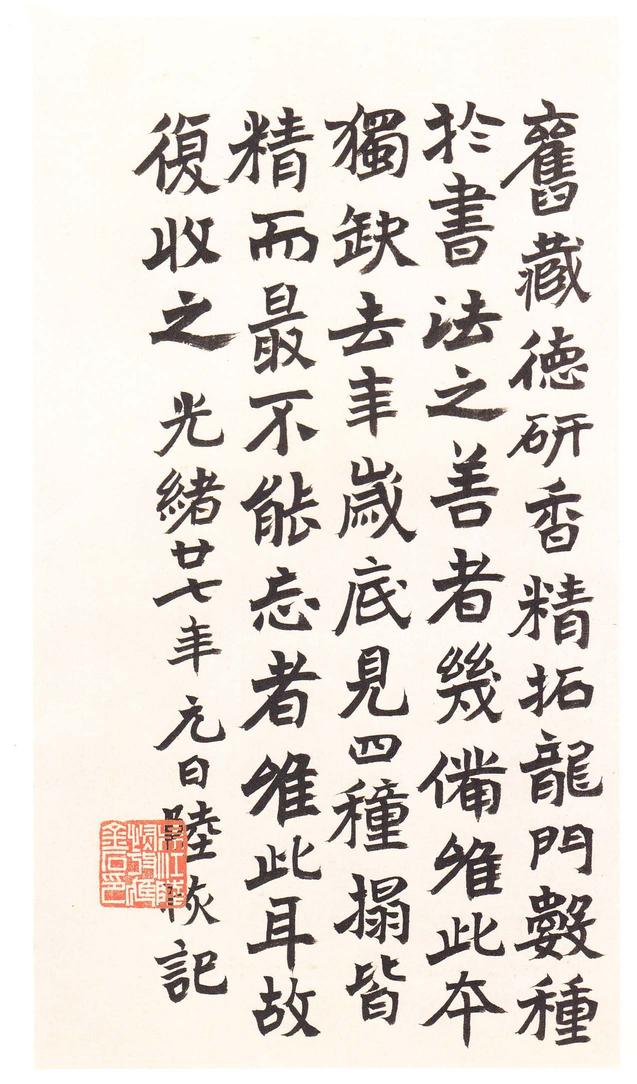 舊藏德研香精拓龍門數種
於書法之善者幾備唯此本
獨缺去年歲底見四種搨皆
精而最不能忘者唯此耳故
復收之 光緒廿七年元日陸恢記